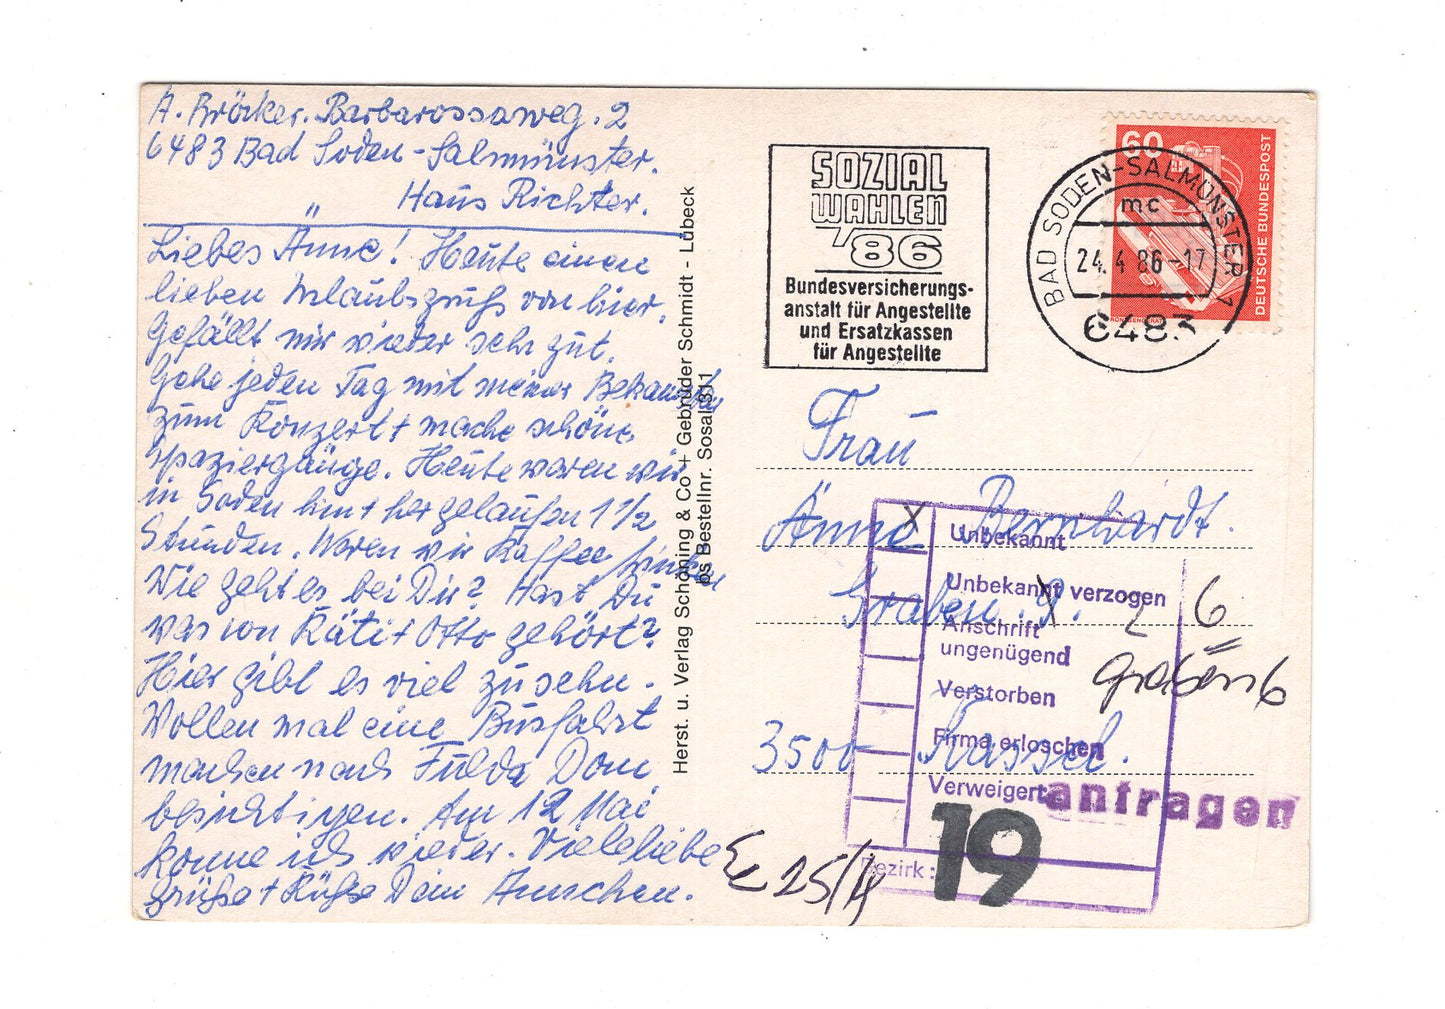 A. Bröcker. Barbarossaweg. 2
6483 Bad Soden-Salmünster.
Haus Richter.
Liebes Änne! Heute einen
lieben Urlaubsgruß von hier.
Gefällt mir wieder sehr gut.
Gehe jeden Tag mit meiner Bekannten
zum Konzert + mache schöne
Spaziergänge. Heute waren wir
in Soden hin + her gelaufen 1 1/2
Stunden. Waren wir Kaffee trinken
Wie geht es bei Dir? Hast Du
was von Käti + Otto gehört?
Hier gibt es viel zu sehn.
Wollen mal eine Busfahrt
machen nach Fulda Dom
besichtigen. Am 12 Mai
komme ich wieder. Viele liebe
Grüße + Küße Dein Annchen.
Herst. u. Verlag Schöning & Co + Gebrüder Schmidt - Lübeck
bs Bestellnr. Sosal 311
SOZIAL
WAHLEN
'86
Bundesversicherungs-
anstalt für Angestellte
und Ersatzkassen
für Angestellte
60
DEUTSCHE BUNDESPOST
BAD SODEN-SALMÜNSTER 1
mc
24.4.86-17
6483
Frau
Änne Bernhardt.
Graben 9.
2 6
Graben 6
3500 Kassel.
x
Unbekannt
Unbekannt verzogen
Anschrift
ungenügend
Verstorben
Firma erloschen
Verweigert
anfragen
Bezirk:
19
25/4